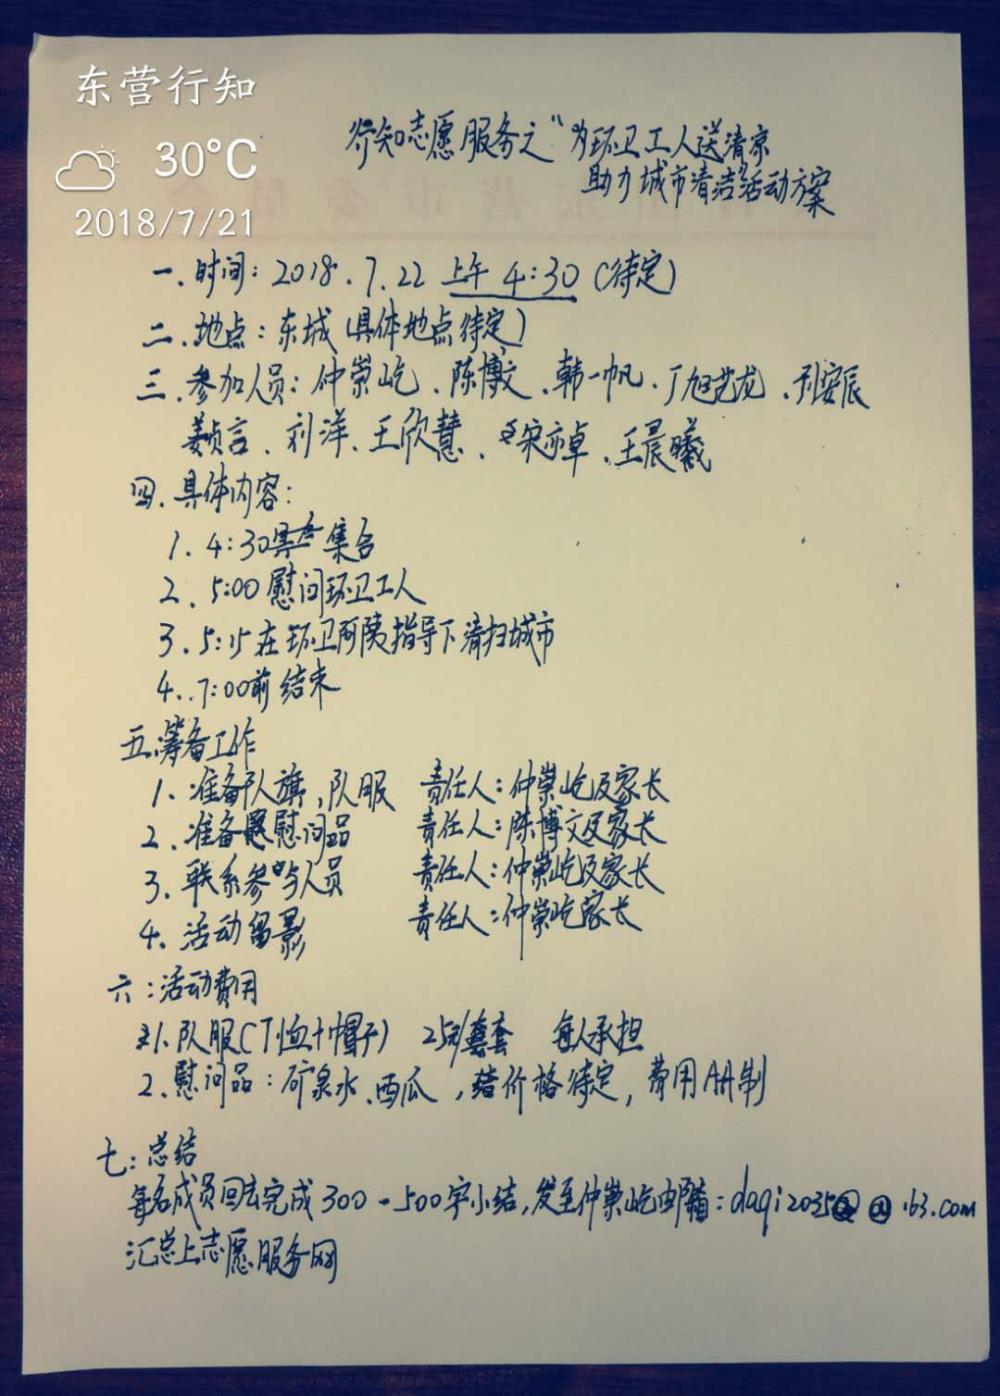 东营行知
30°C
2018/7/21
行知志愿服务之“为环卫工人送清凉
助力城市清洁”活动方案
一.时间：2018.7.22 上午 4:30（待定）
二.地点：东城（具体地点待定）
三.参加人员：仲崇屹、陈博文、韩一帆、丁旭艺龙、刘安辰
姜贞言、刘洋、王欣慧、宋亦卓、王晨曦
四.具体内容：
1.4:30 集合
2.5:00慰问环卫工人
3.5:15在环卫阿姨指导下清扫城市
4.7:00前结束
五.筹备工作
1.准备队旗，队服 责任人：仲崇屹及家长
2.准备慰问品 责任人：陈博文及家长
3.联系参与人员 责任人：仲崇屹及家长
4.活动留影 责任人：仲崇屹家长
六：活动费用
1.队服（T恤+帽子） 25元/套 每人承担
2.慰问品：矿泉水、西瓜，价格待定，费用AA制
七：总结
每名成员回去完成300-500字小结，发至仲崇屹邮箱：daqi2035@163.com
汇总上志愿服务网